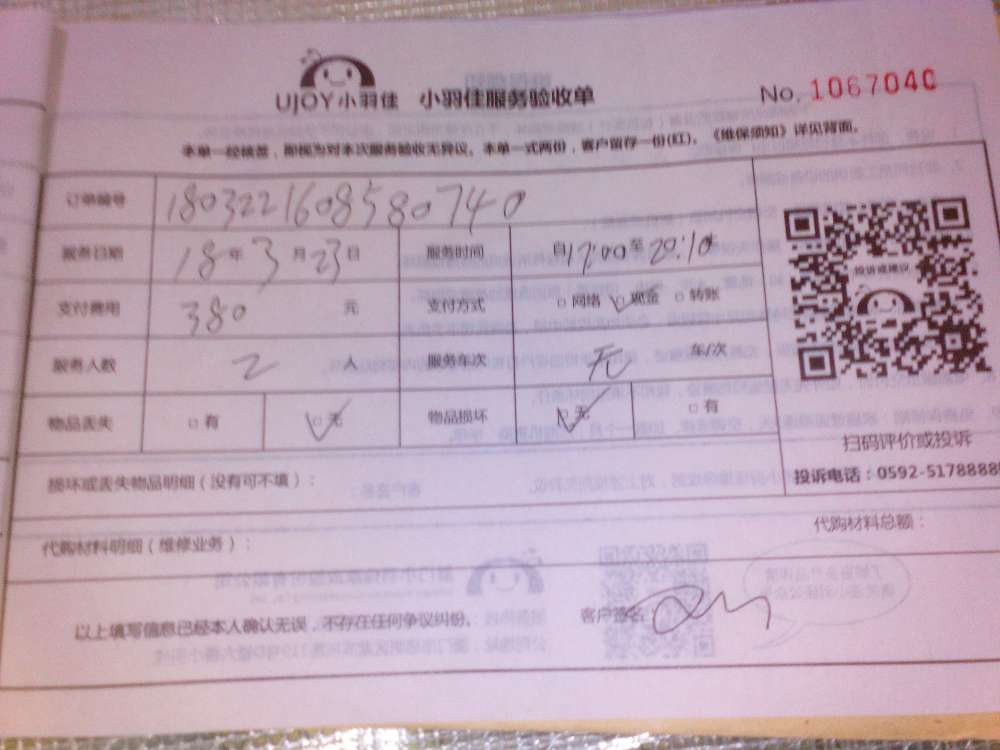 UJOY小羽佳 小羽佳服务验收单 No. 1067040
本单一经核签，即视为对本次服务验收无异议。本单一式两份，客户留存一份(红)。《维保须知》详见背面。
订单编号 1803221608580740
服务日期 18年3月23日 服务时间 自17:00至20:10
支付费用 380 元 支付方式 □网络 ☑现金 □转账
服务人数 2 人 服务车次 无 车/次
物品丢失 □有 ☑无 物品损坏 ☑无 □有
投诉或建议
扫码评价或投诉
投诉电话：0592-5178888
损坏或丢失物品明细（没有可不填）：
代购材料明细（维修业务）： 代购材料总额：
以上填写信息已经本人确认无误，不存在任何争议纠纷。 客户签名：